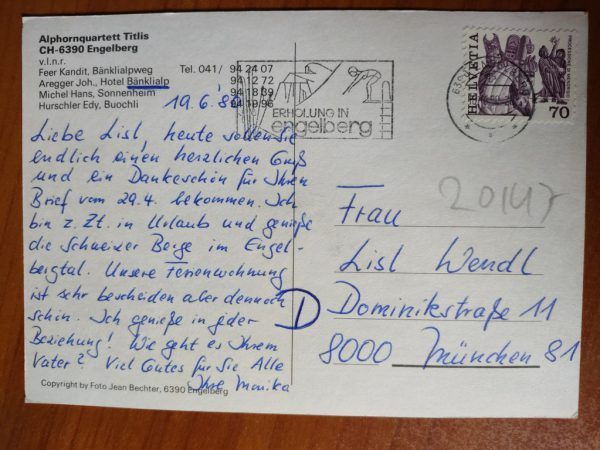 Alphornquartett Titlis
CH-6390 Engelberg
v.l.n.r.
Feer Kandit, Bänklialpweg Tel. 041 / 94 24 07
Aregger Joh., Hotel Bänklialp 94 12 72
Michel Hans, Sonnenheim 94 18 39
Hurschler Edy, Buochli 94 19 96
ERHOLUNG IN
engelberg
HELVETIA
70
19.6.'86
Liebe Lisl, heute sollen Sie
endlich einen herzlichen Gruß
und ein Dankeschön für Ihren
Brief vom 29.4. bekommen. Ich
bin z. Zt. in Urlaub und genieße
die Schweizer Berge im Engel-
bergtal. Unsere Ferienwohnung
ist sehr bescheiden aber dennoch
schön. Ich genieße in jeder
Beziehung! Wie geht es Ihrem
Vater? Viel Gutes für Sie Alle
Ihre Monika
20147
Frau
Lisl Wendl
D Dominikstraße 11
8000 München 81
Copyright by Foto Jean Bechter, 6390 Engelberg